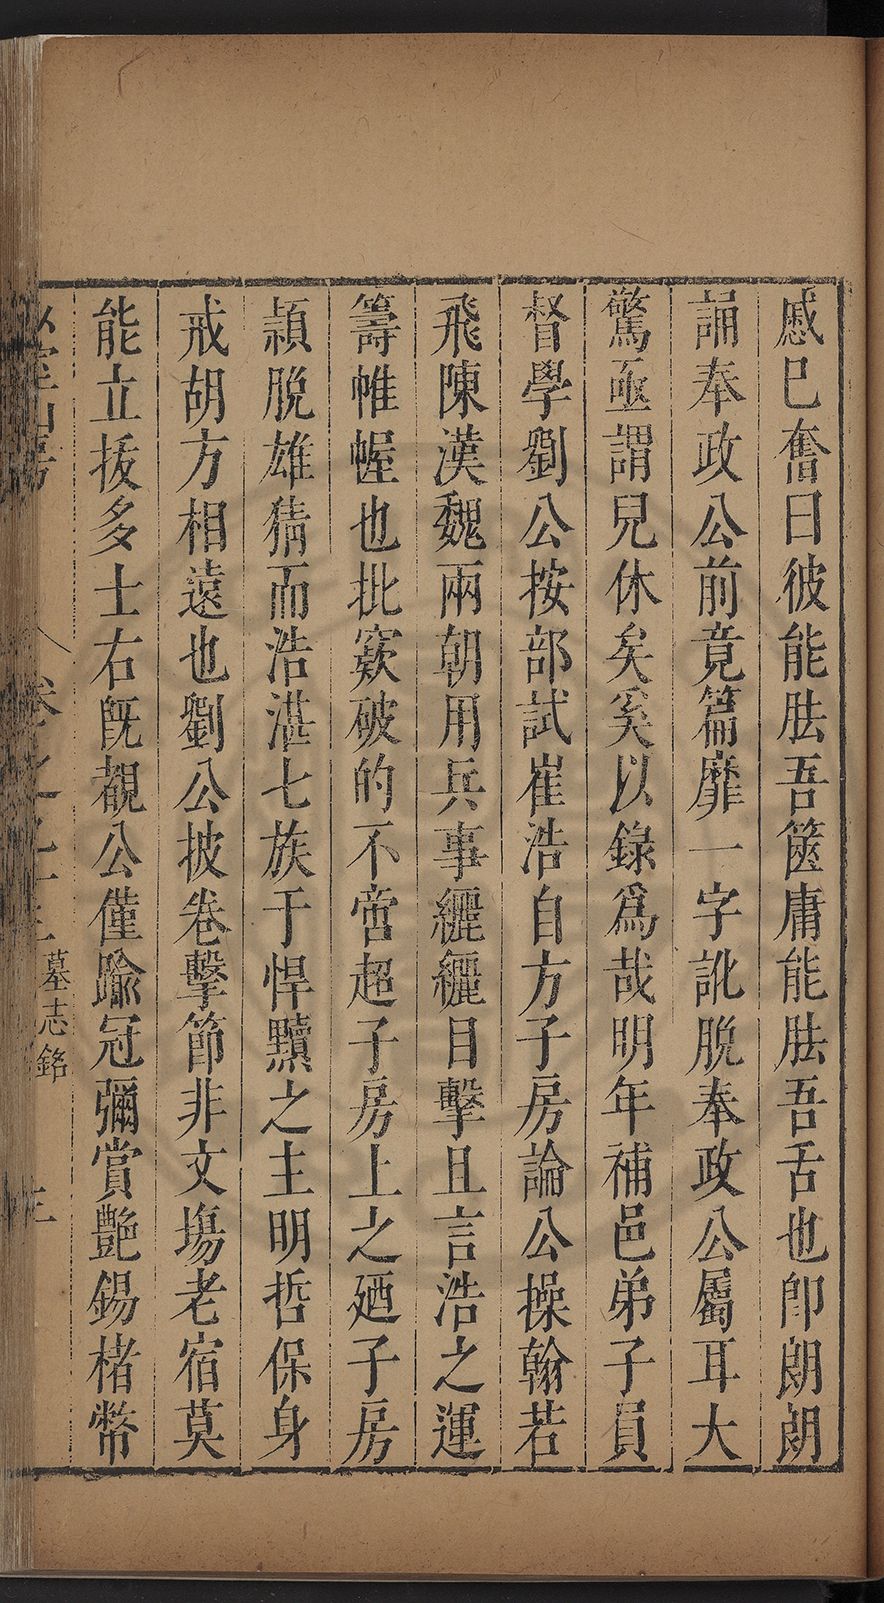 慼已奮曰彼能胠吾篋庸能胠吾舌也卽朗朗
誦奉政公前竟篇靡一字訛脫奉政公屬耳大
驚亟謂兒休矣奚以錄爲哉明年補邑弟子員
督學劉公按部試崔浩自方子房論公操翰若
飛陳漢魏兩朝用兵事纚纚目擊且言浩之運
籌帷幄也批窾破的不啻超子房上之廼子房
穎脫雄猜而浩湛七族于悍黷之主明哲保身
戒胡方相遠也劉公披卷擊節非文塲老宿莫
能立拔多士右旣覩公僅踰冠彌賞艷錫楮幣
山房 卷之九十三 墓志銘 三